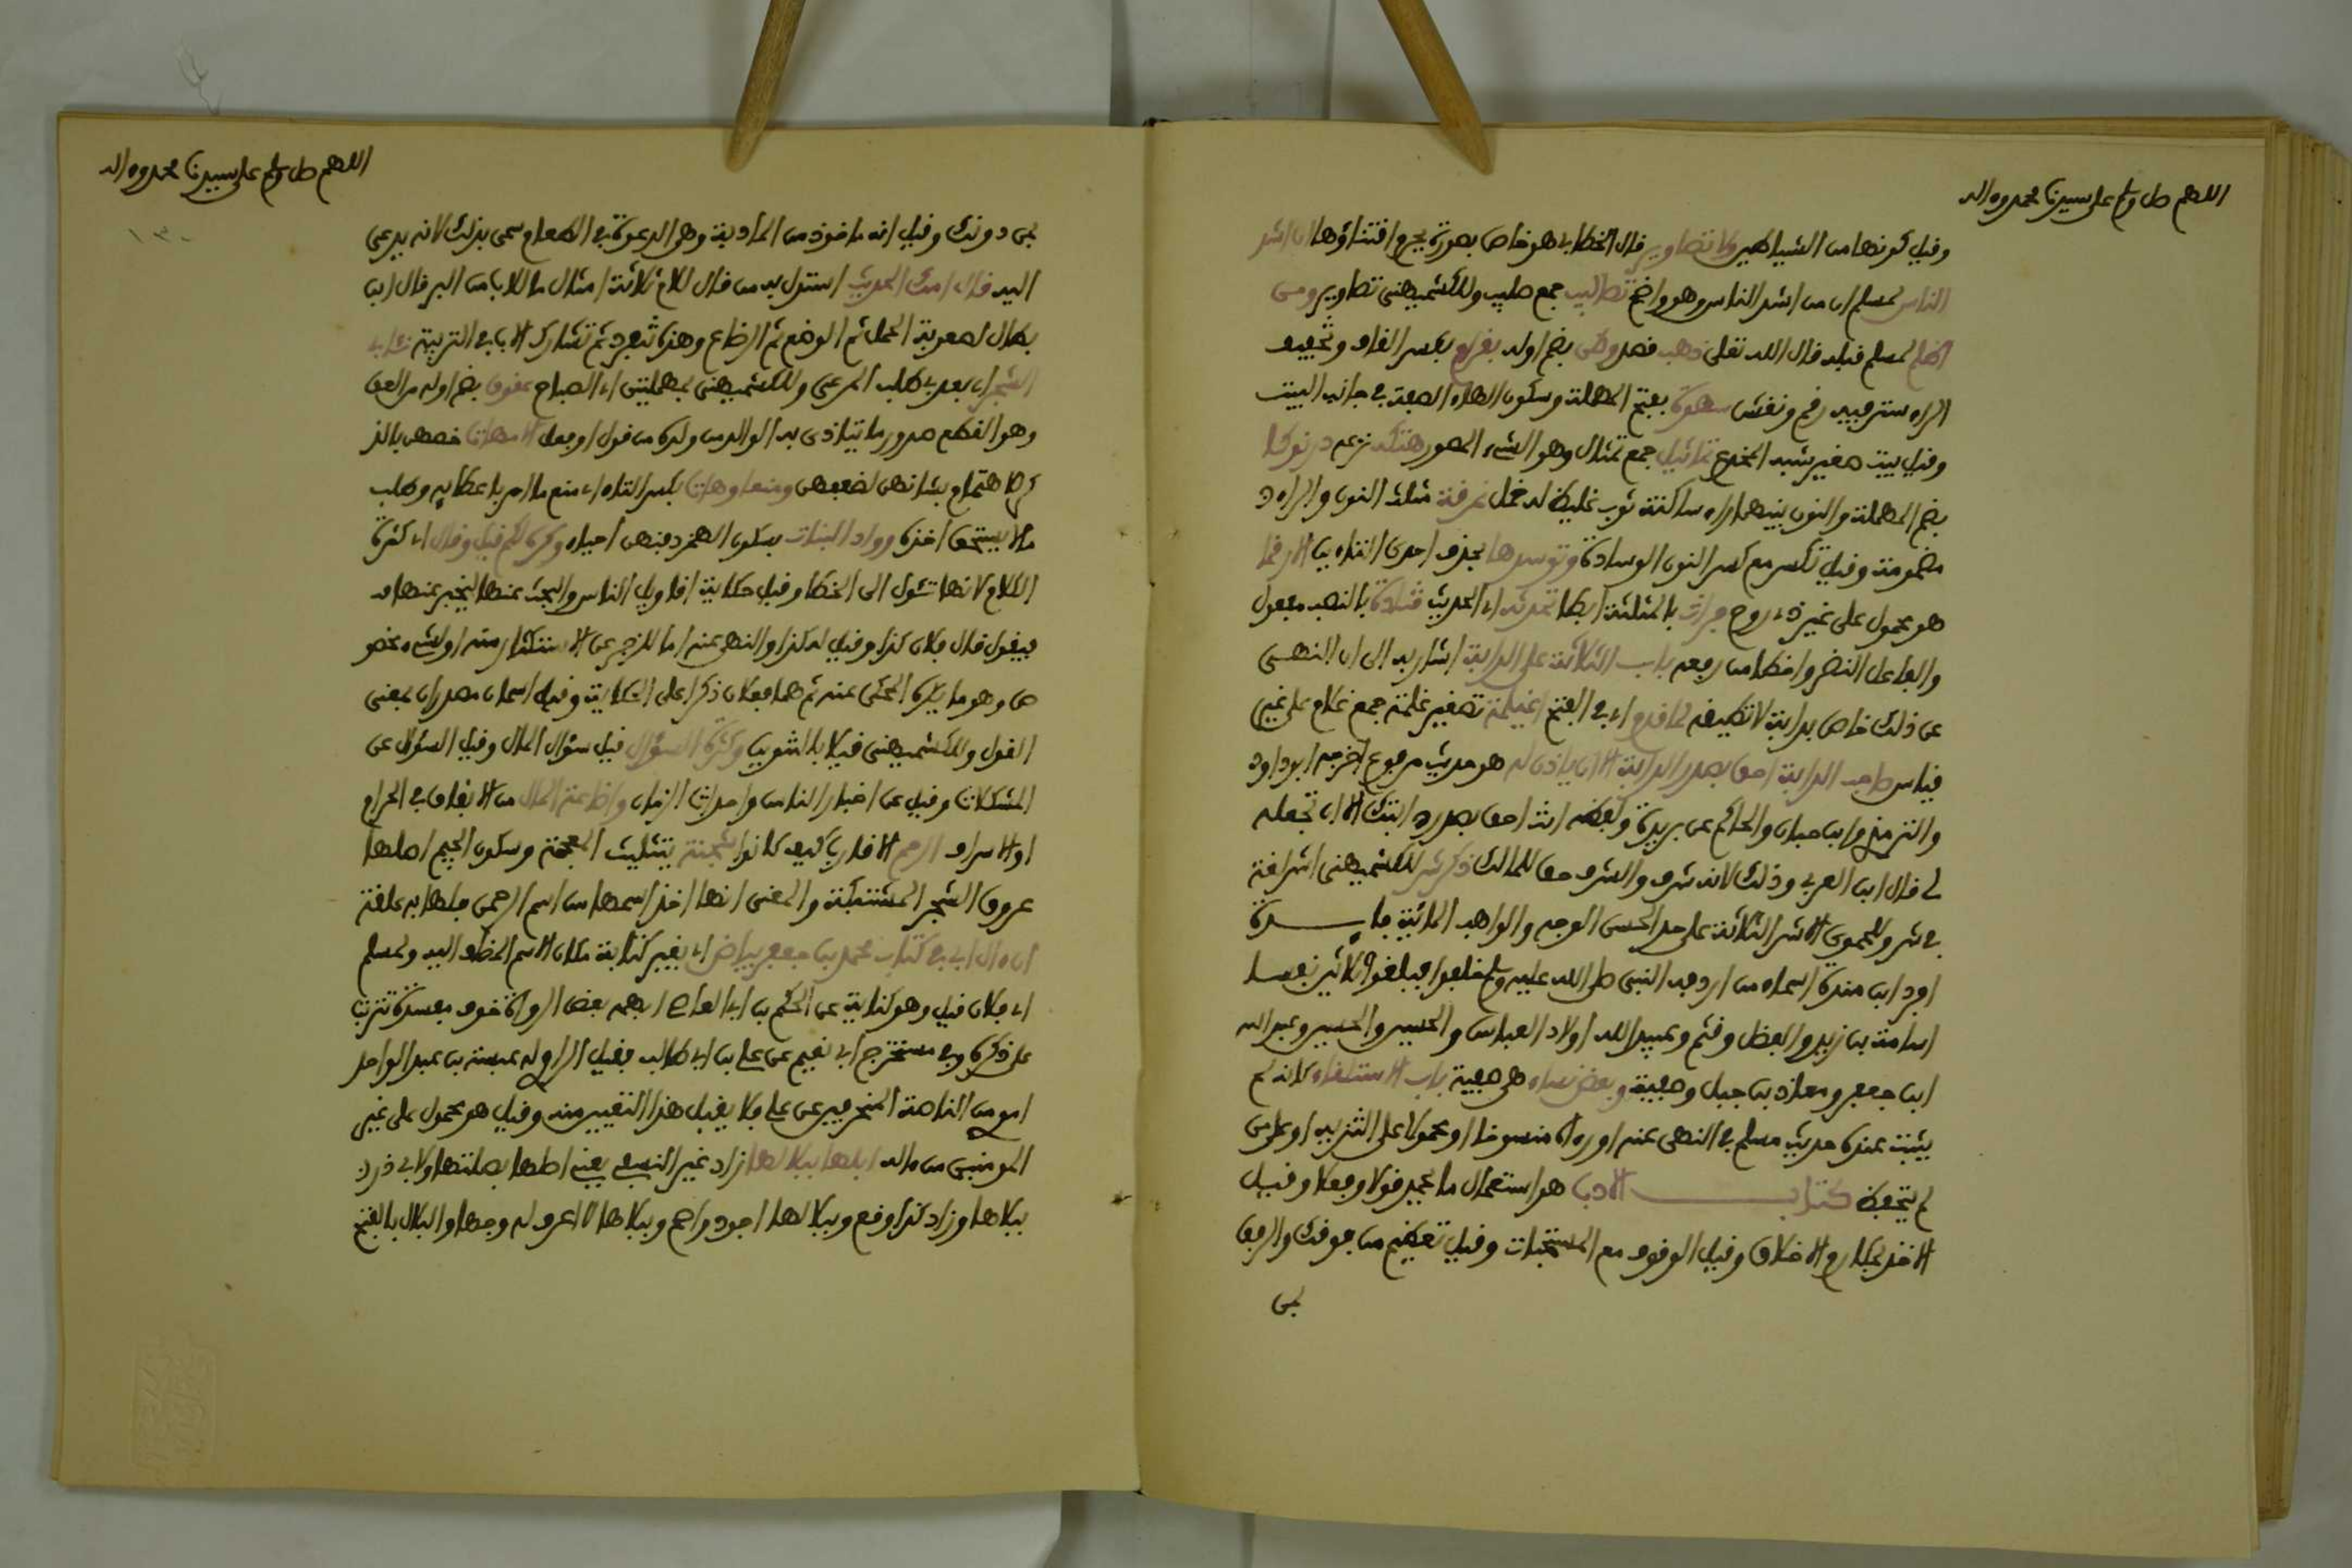 اللهم صل وسلم على سيدنا محمد وءاله
وقيل كونها من الشياطين ولا تصاوير قال الخطابي هو خاص بصورة يحرم اقتناؤها ان اشد
الناس لمسلم ان من اشد الناس وهو واضح تصاليب جمع صليب وللكشميهني تصاوير ومن
اظلم لمسلم قبله قال الله تعلى ذهب قصد وطى بضم اوله بقرام بكسر القاف وتخفيف
الراء ستر فيه رقم ونقش سهوة بفتح المهملة وسكون الهاء الصفة في جانب البيت
وقيل بيت صغير شبه المخدع تماثيل جمع تمثال وهو الشيء المصور هتكه نزعه درنوكا
بضم المهملة والنون بينهما راء ساكنة ثوب غليظ له خمل نمرقة مثلث النون والراء
مضمومة وقيل تكسر مع كسر النون الوسادة وتوسدها بحذف احدى التاءين الا رقما
هو محمول على غير ذي روح جراث بالمثلثة ايضا تحدثه اي الحديث قتادة بالنصب مفعول
والفاعل النضر واخطا من رفعه باب الثلاثة على الدابة اشار به الى ان النهي
عن ذلك خاص بدابة لا تطيقه لما قدم اي في الفتح اغيلمة تصغير غلمة جمع غلام على غير
قياس صاحب الدابة احق بصدر الدابة الا ان ياذن له هو حديث مرفوع اخرجه ابو داود
والترمذي وابن حبان والحاكم عن بريدة ولفظه انت احق بصدر دابتك الا ان تجعله
لي قال ابن العربي وذلك لانه شرف والشرف حق للمالك ذكر شر للكشميهني اشر لغة
في شر وللحموي الاشر الثلاثة على حد الحسن الوجه والواهب المائة فايدة
افرد ابن مندة اسماء من اردفه النبي صلى الله عليه وسلم خلفه فبلغوا ثلاثين نفسا
اسامة بن زيد والفضل وقثم وعبيد الله اولاد العباس والحسن والحسين وعبد الله
ابن جعفر ومعاذ بن جبل وصفية وبعض نساه هي صفية باب الاستلقاء كانه لم
يثبت عنده حديث مسلم في النهي عنه او رءاه منسوخا او محمولا على التنزيه او على من
لم يتحفظ كتاب الادب هو استعمال ما يحمد قولا وفعلا وقيل
الاخذ بمكارم الاخلاق وقيل الوقوف مع المستحسنات وقيل تعظيم من فوقك والرفق
بمن
اللهم صل وسلم على سيدنا محمد وءاله
١٣٠
بمن دونك وقيل انه ماخوذ من المادبة وهو الدعوة في الطعام سمي بذلك لانه يدعى
اليه قال امك الحديث استدل به من قال للام ثلاثة امثال ما للاب من البر قال ابن
بطال لصعوبة الحمل ثم الوضع ثم الرضاع وهذه تنفرد ثم تشارك الاب في التربية نئا بي
الشجر اي بعد بي طلب المرعى وللكشميهني بمهملتين اي الصباح عقوق بضم اوله من العق
وهو القطع صدور ما يتاذى به الوالد من ولده من قول او فعل الامهات خصهن بالذ
كر اهتماما بشانهن لضعفهن ومنعا وهات بكسر التاء اي منع ما امر باعطايه وطلب
ما لا يستحق اخذه وواد البنات بسكون الهمز دفنهن احياء وكره لكم قيل وقال اي كثرة
الكلام لانها تئول الى الخطا وقيل حكاية اقاويل الناس والبحث عنها ليخبر عنها
فيقول قال فلان كذا وقيل له كذا والنهي عنه اما للزجر عن الاستكثار منه او لشيء مخصو
ص وهو ما يكره المحكي عنه ثم هما فعلان ذكرا على الحكاية وقيل اسمان مصدران بمعنى
القول وللكشميهني قيلا بالتنوين وكثرة السؤال قيل سؤال المال وقيل السؤال عن
المشكلات وقيل عن اخبار الناس واحداث الزمان واضاعة المال من الانفاق في الحرام
او الاسراف الرحم الاقارب كيف كانوا شجنة بتثليث المعجمة وسكون الجيم اصلها
عروق الشجر المشتبكة والمعنى انها اخذ اسمها من اسم الرحمن فلها به علقة
ان ءال ابي في كتاب محمد بن جعفر بياض اي بغير كتابة مكان الاسم المضاف اليه ولمسلم
اي فلان قيل وهو كناية عن الحكم بن ابي العاص ابهمه بعض الرواة خوف مفسدة تترتب
على ذكره وفي مستخرج ابي نعيم عن علي بن ابي طالب فقيل الراوي له عنبسة بن عبد الواحد
اموي من الناصبة المنحرفين عن علي فلا يقبل هذا التعيين منه وقيل هو محمول على غير
المومنين من ءاله ابلها ببلالها زاد غير النسفي يعني اصلها بصلتها ولابي ذر
ببلاها وزاد كذا وقع وببلالها اجود واصح وببلاها لا اعرف له وجها والبلال بالفتح